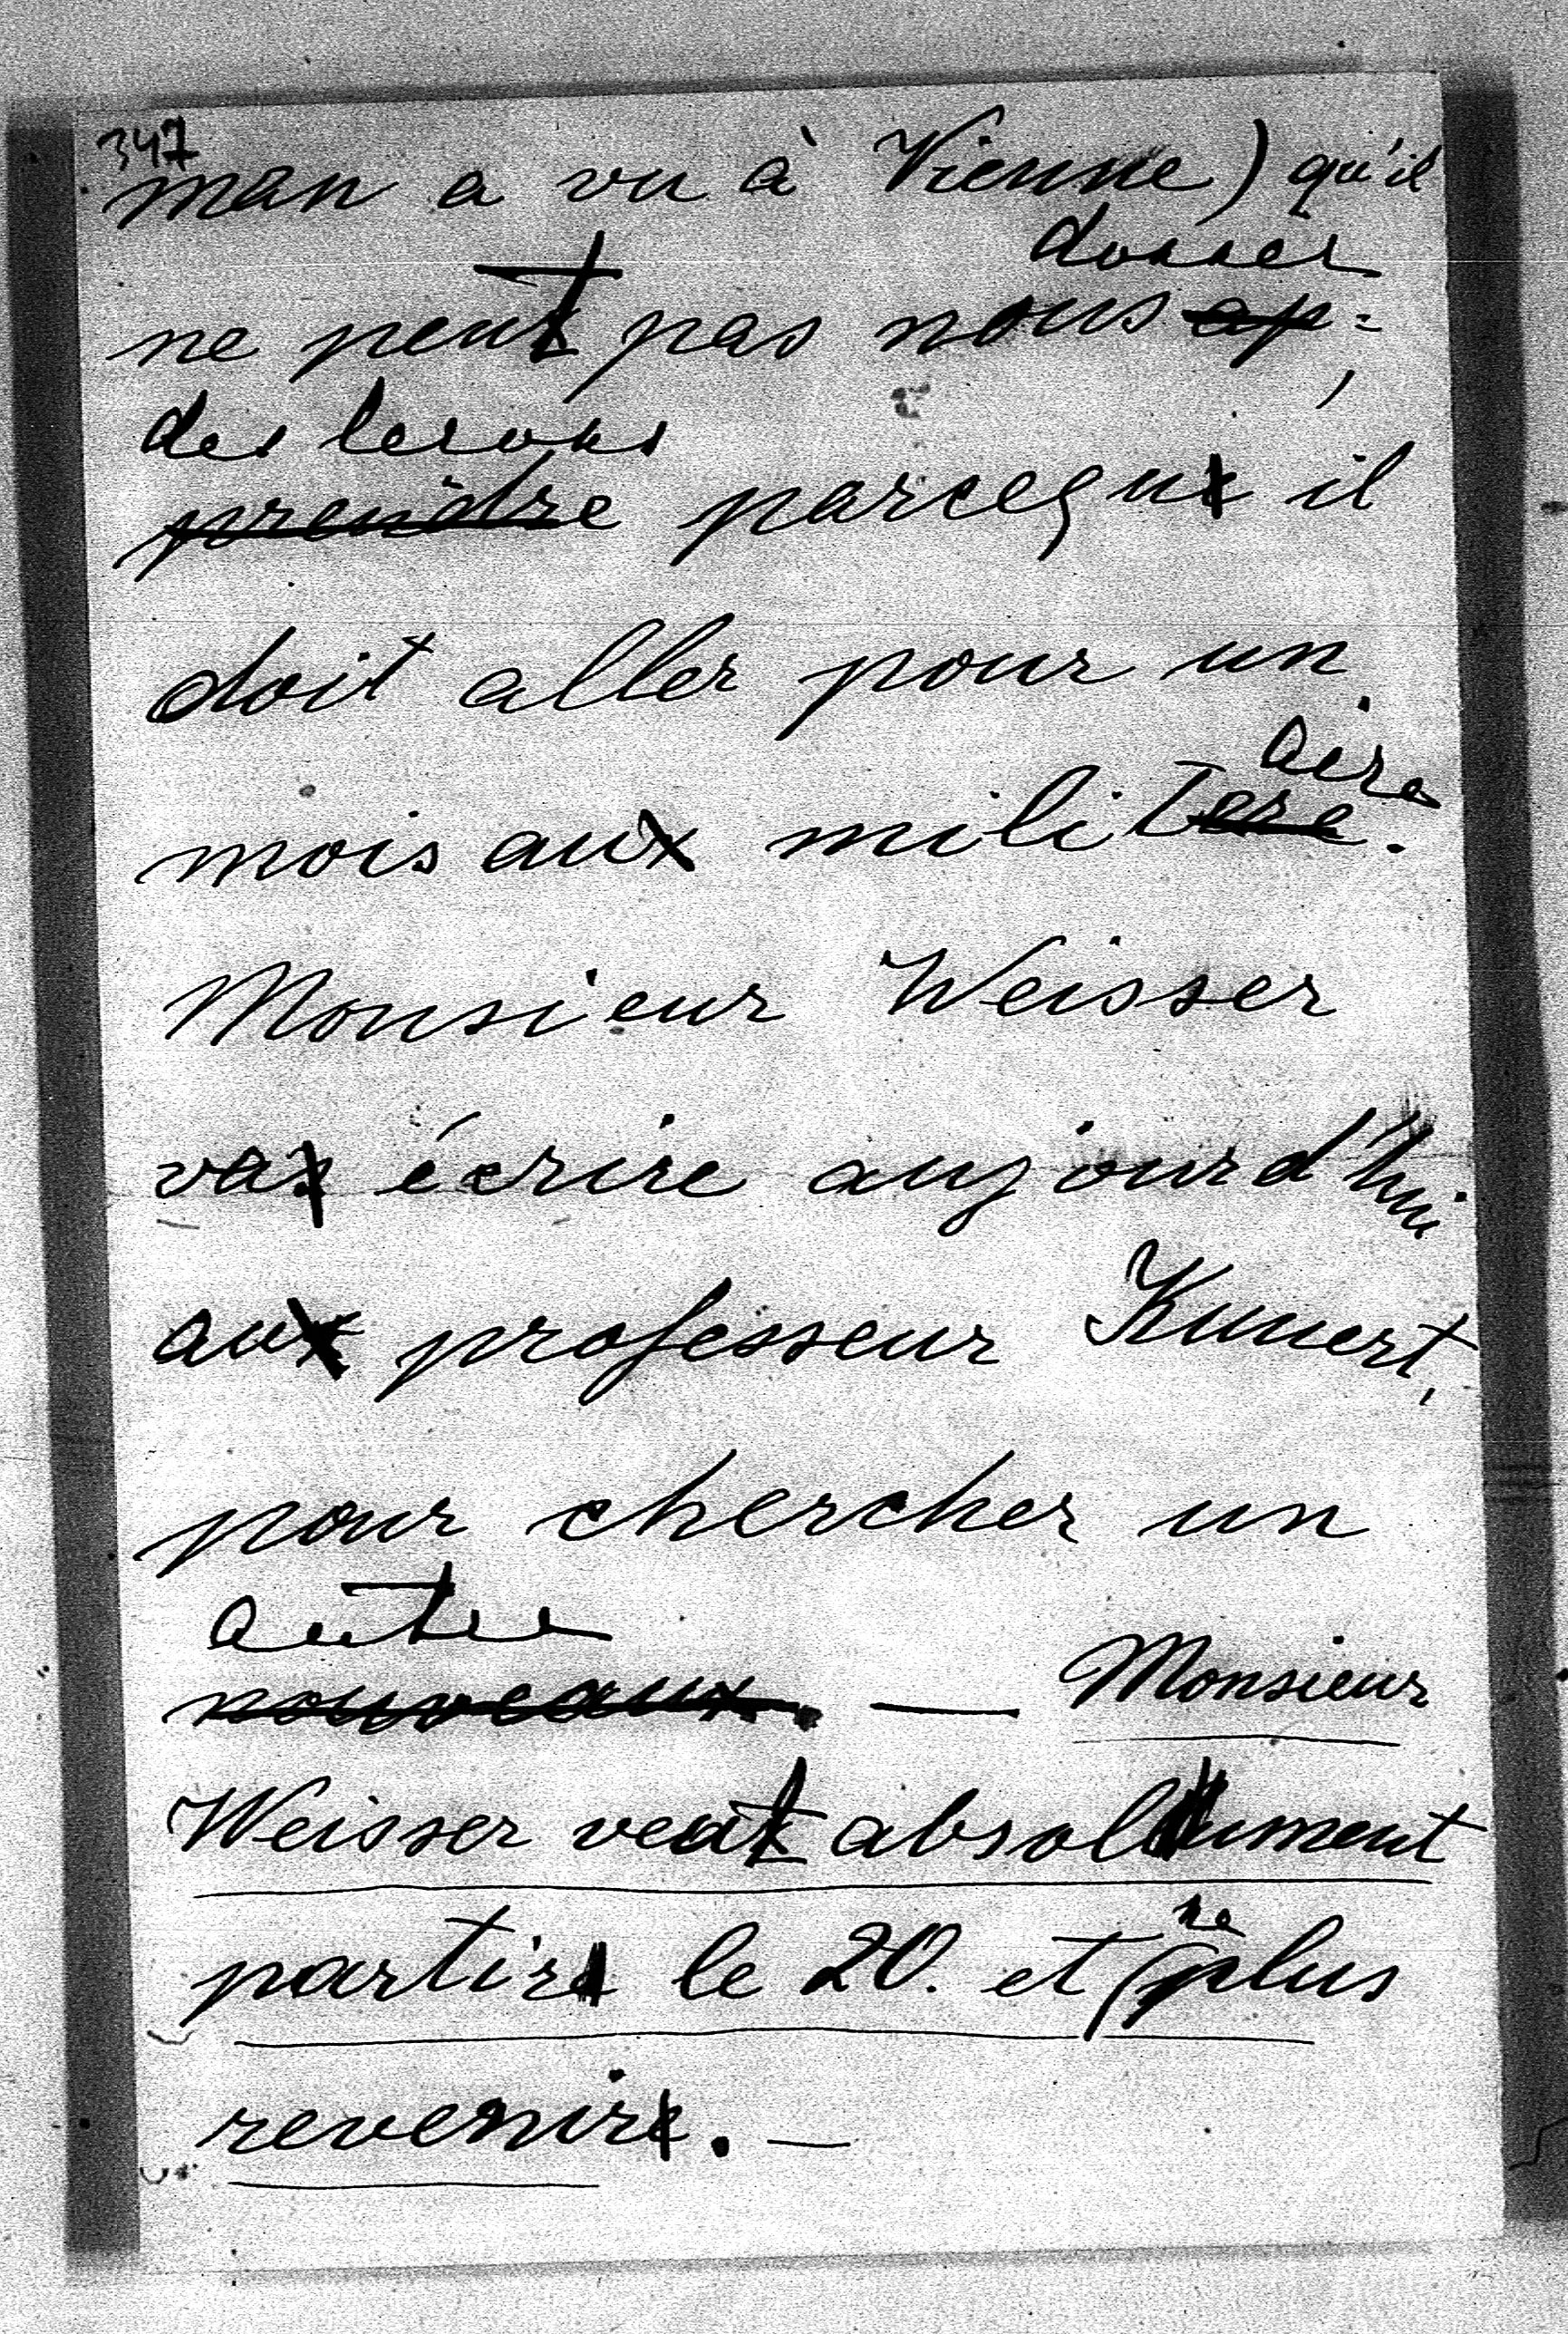 347
man a vu à Vienne) qu'il
donner
ne peut pas nous ap=
des lecons
prendre parcequ' il
doit aller pour un
aire
mois aux militere.
Monsieur Weisser
vas écrire aujourd'hui
aux professeur Kunert,
pour chercher un
autre
nouveaux. — Monsieur
Weisser veut absolument
ne
partire le 20. et plus
revenire. —